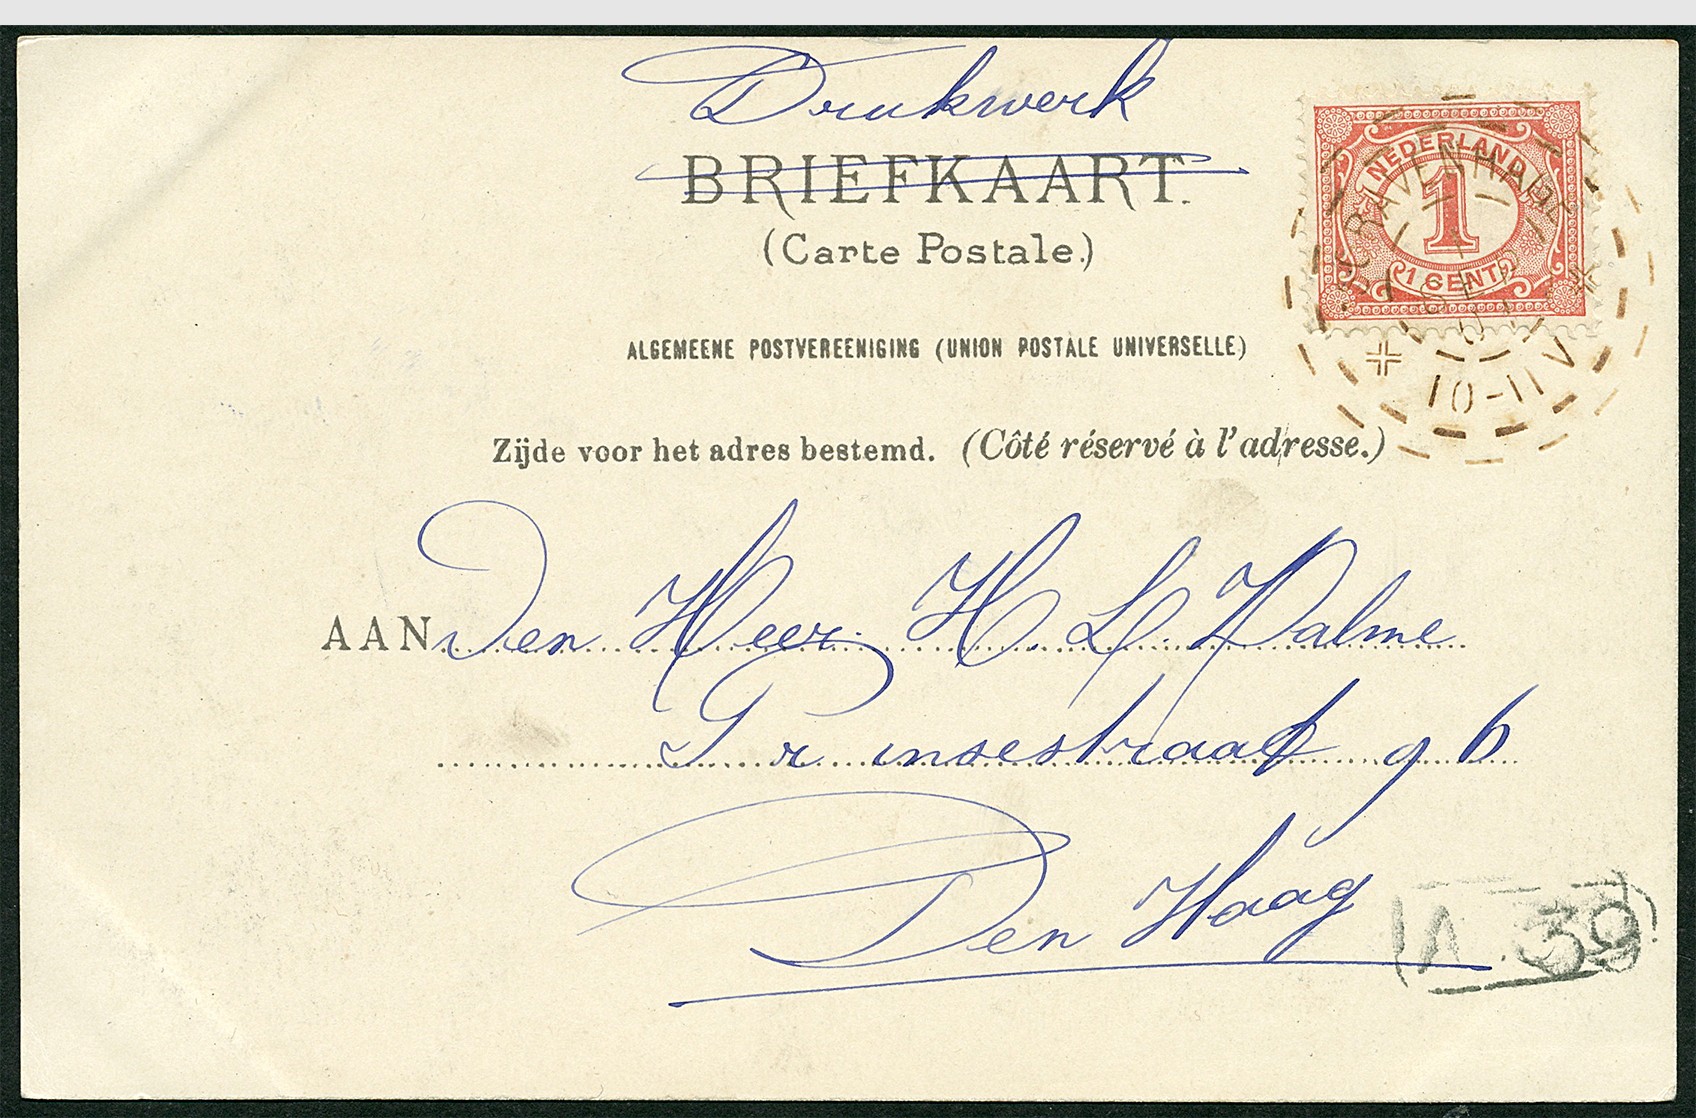 Drukwerk
BRIEFKAART.
(Carte Postale.)
NEDERLAND
1
1 CENT
10-11 V
ALGEMEENE POSTVEREENIGING (UNION POSTALE UNIVERSELLE)
Zijde voor het adres bestemd. (Côté réservé à l'adresse.)
AAN Den Heer H. L. Palme
Prinsestraat 96
Den Haag
A.39